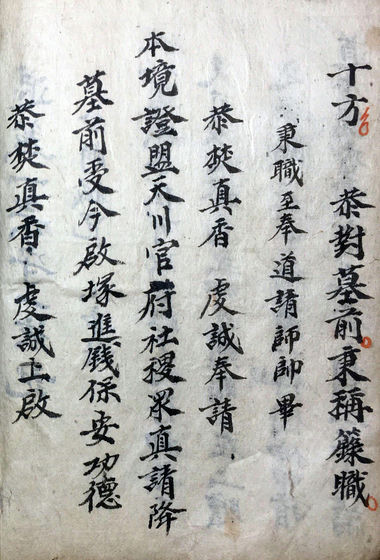 十方 恭對墓前秉稱籙職
秉職至奉道請師師畢
恭焚真香 虔誠奉請
本境證盟天川官府社稷眾真請降
墓前受今啟塚進錢保安功德
恭焚真香 虔誠上啟